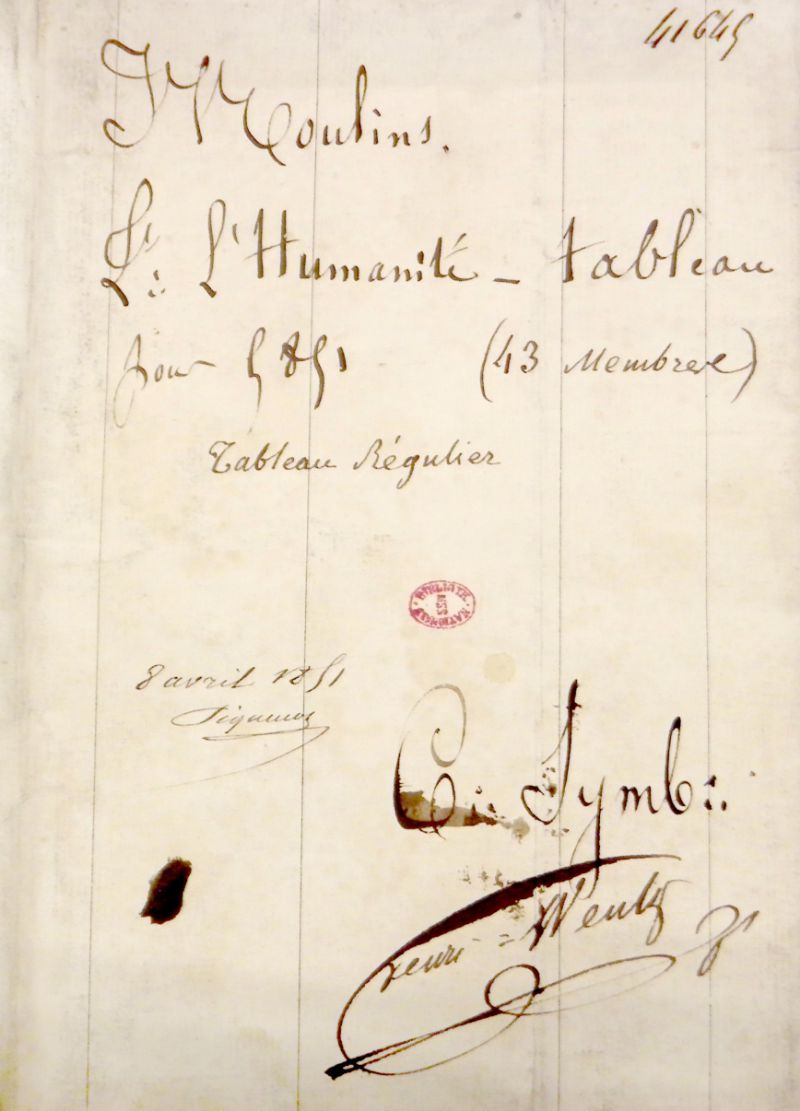 41649
Moulins.
L∴ L'Humanité – tableau
pour 5851 (43 Membres)
Tableau Régulier
BIBLIOTH. NATIONALE
8 avril 1851
C∴ Symb∴
henri = Wentz